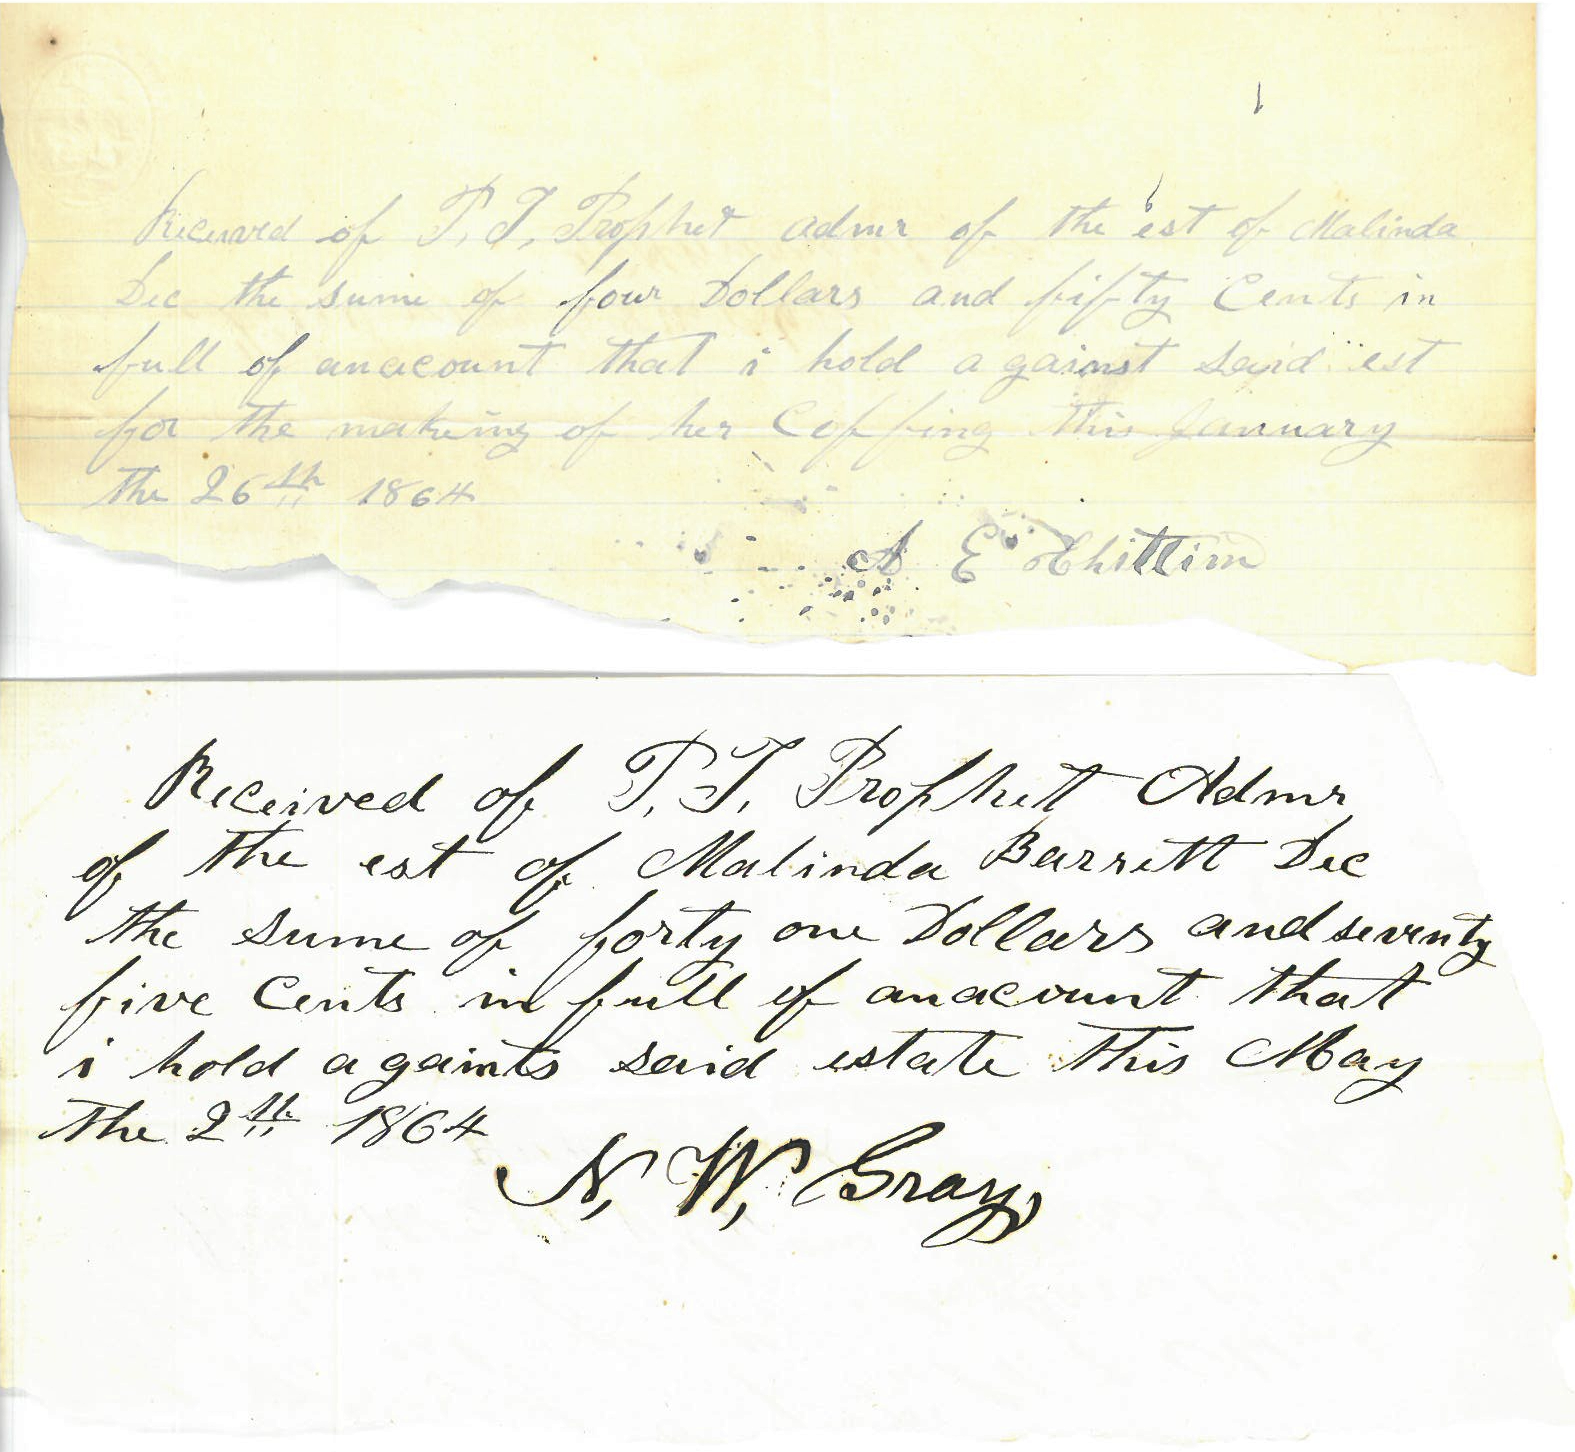 Received of P. T. Prophet admr of the est of Malinda
Dec the sume of four Dollars and fifty Cents in
full of anacount that i hold against said est
for the making of her Coffing this January
the 26th 1864
A E Chittim
Received of P. T. Prophet Admr
of the est of Malinda Barrett Dec
the sume of forty one Dollars and seventy
five Cents in full of anacount that
i hold againts said estate this May
the 2th 1864
N. W. Gray